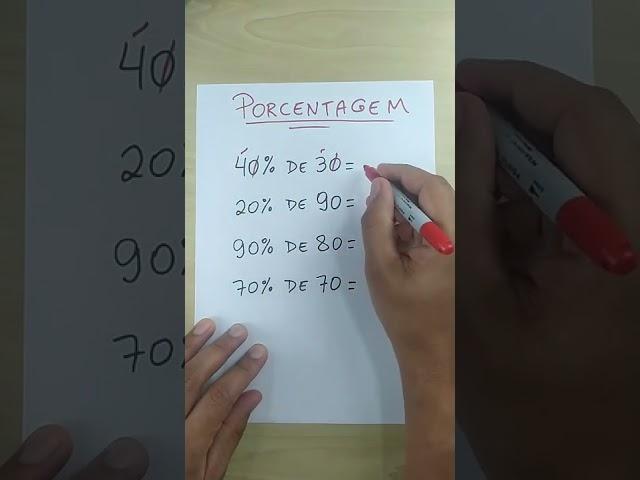 PORCENTAGEM
40% DE 30=
20% DE 90=
90% DE 80=
70% DE 70=